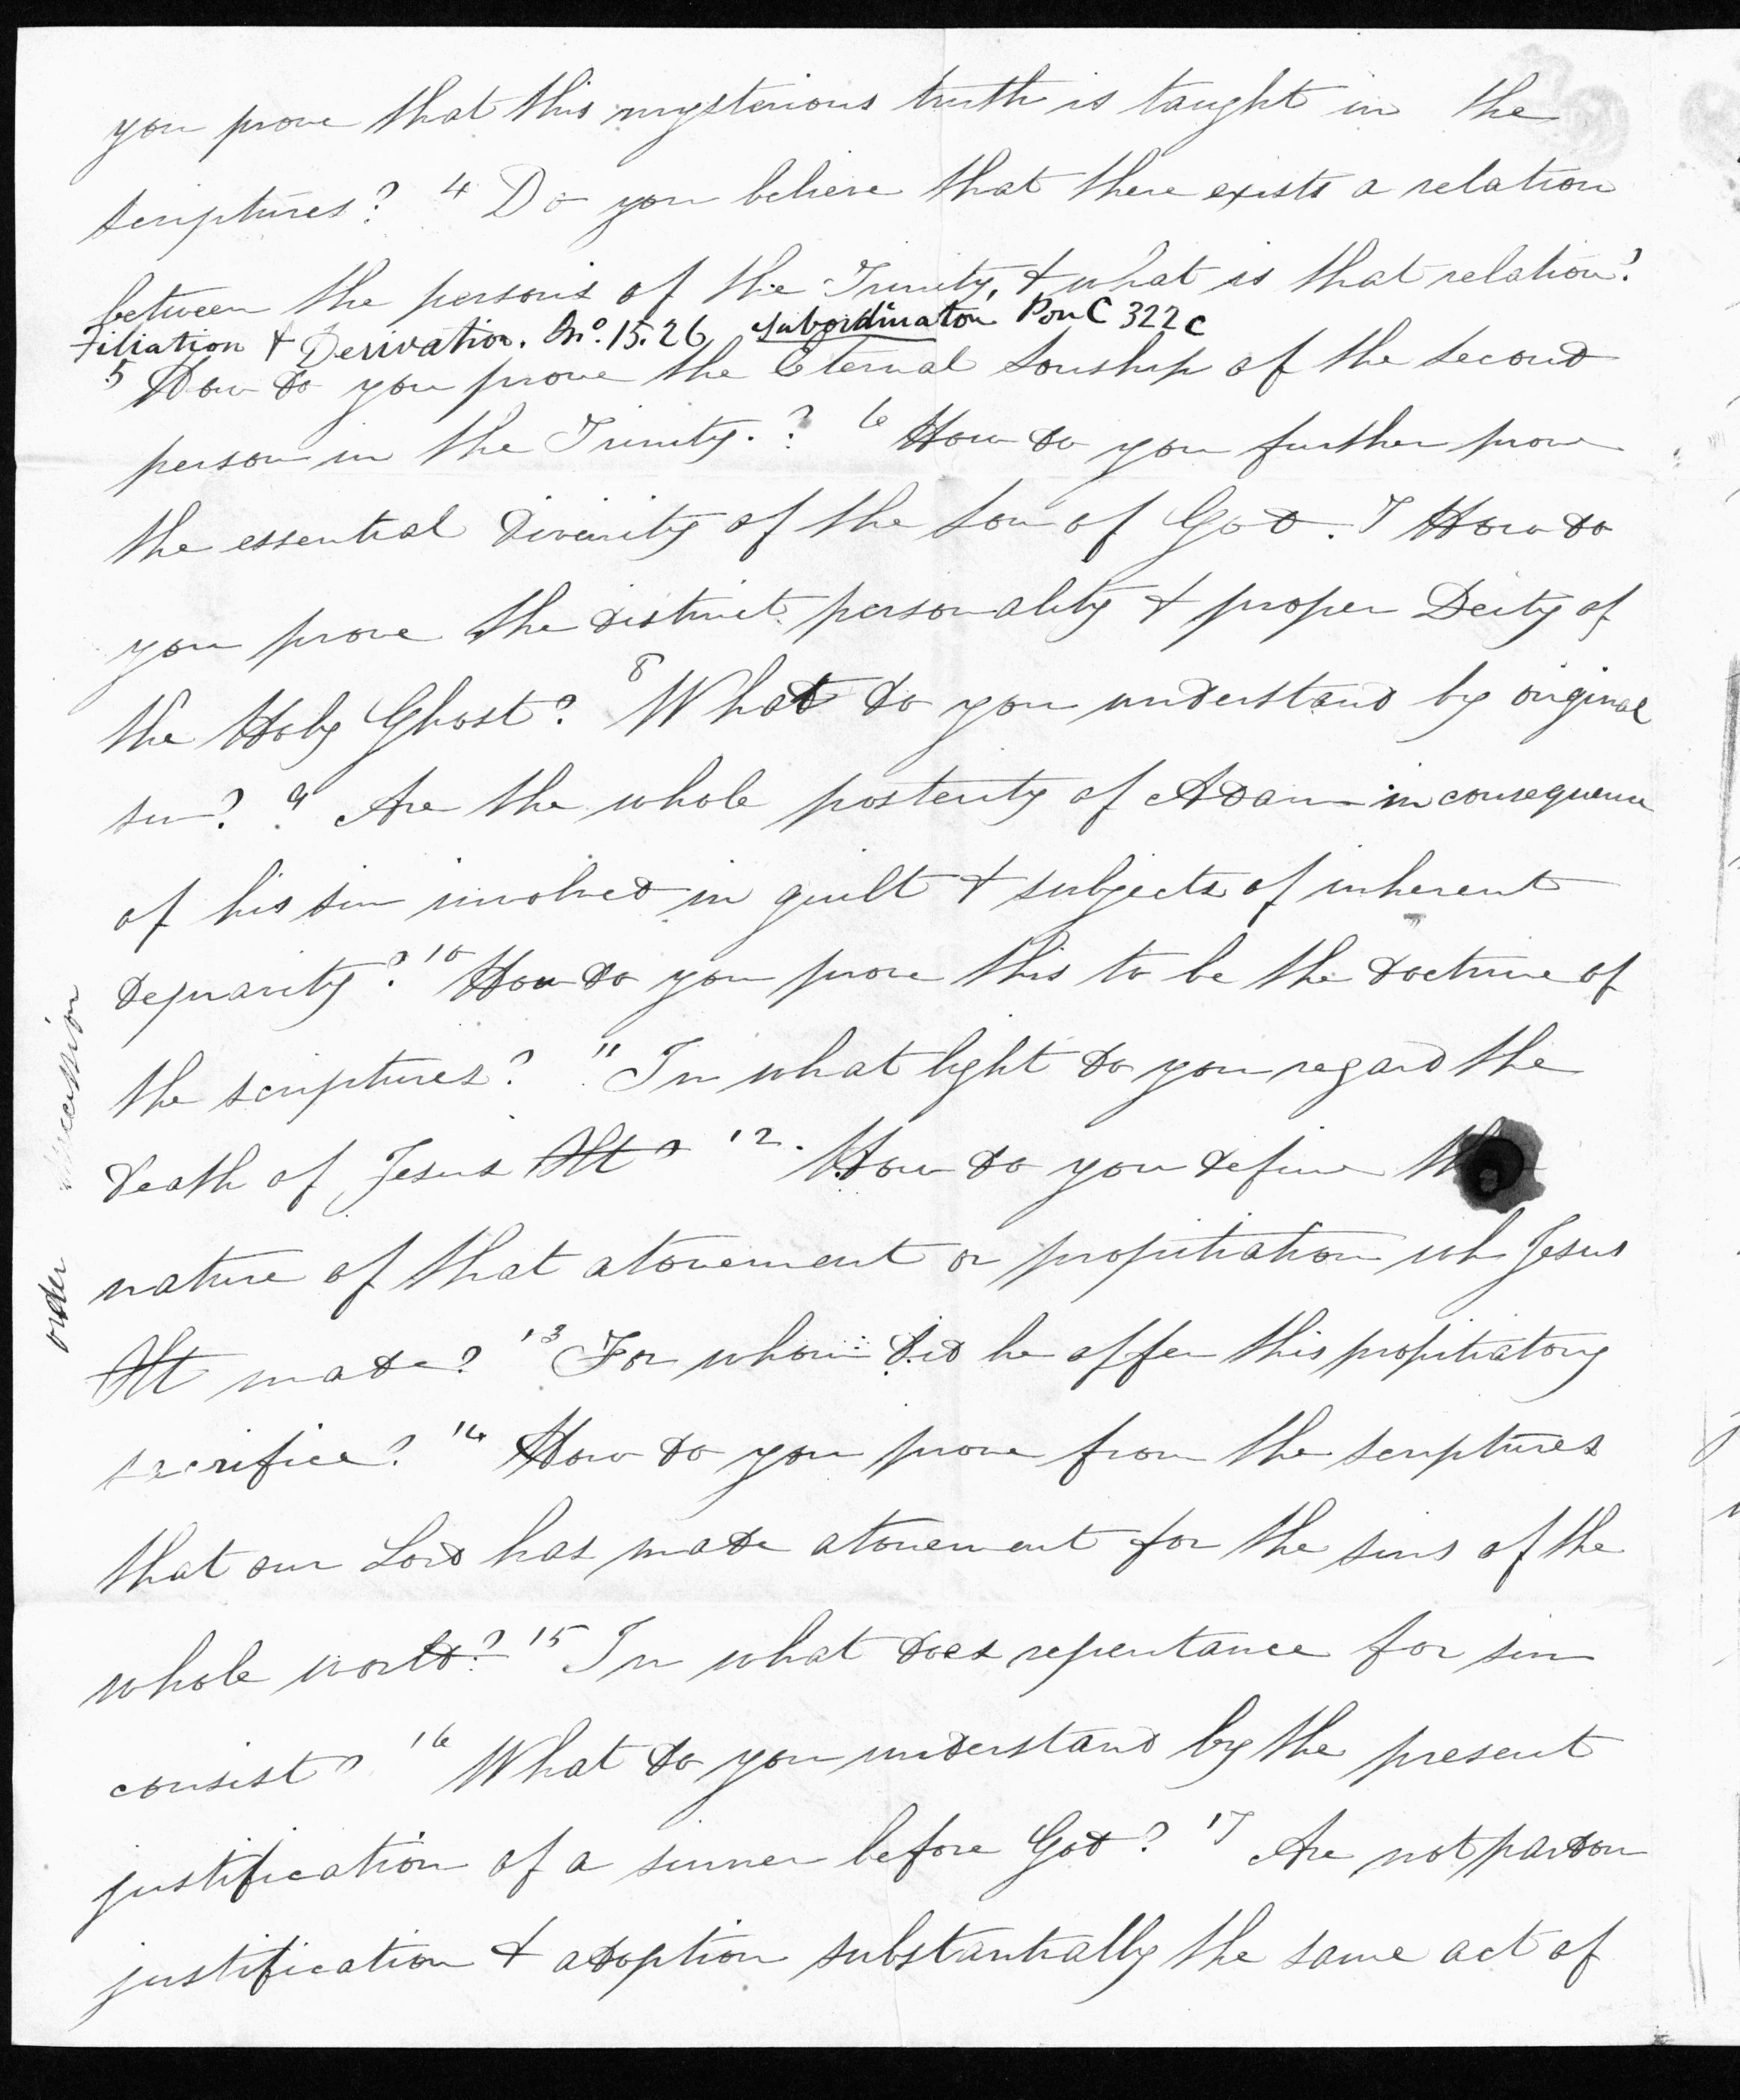 you prove that this mysterious truth is taught in the
scriptures? 4 Do you believe that there exists a relation
between the persons of the Trinity, & what is that relation?
Filiation & Derivation. Jno. 15.26 subordination Pon C 322 c
5 How do you prove the Eternal Sonship of the second
person in the Trinity.? 6 How do you further prove
the essential divinity of the Son of God. 7 How do
you prove the distinct personality & proper Deity of
the Holy Ghost? 8 What do you understand by original
sin? 9 Are the whole posterity of Adam in consequence
of his sin involved in guilt & subjects of inherent
depravity? 10 How do you prove this to be the doctrine of
the scriptures? 11 In what light do you regard the
death of Jesus Xt? 12. How do you define the
nature of that atonement or propitiation wh Jesus
Xt made? 13 For whom did he offer this propitiatory
sacrifice? 14 How do you prove from the scriptures
that our Lord has made atonement for the sins of the
whole world? 15 In what does repentance for sin
consist? 16 What do you understand by the present
justification of a sinner before God? 17 Are not pardon
justification & adoption substantially the same act of
order succession